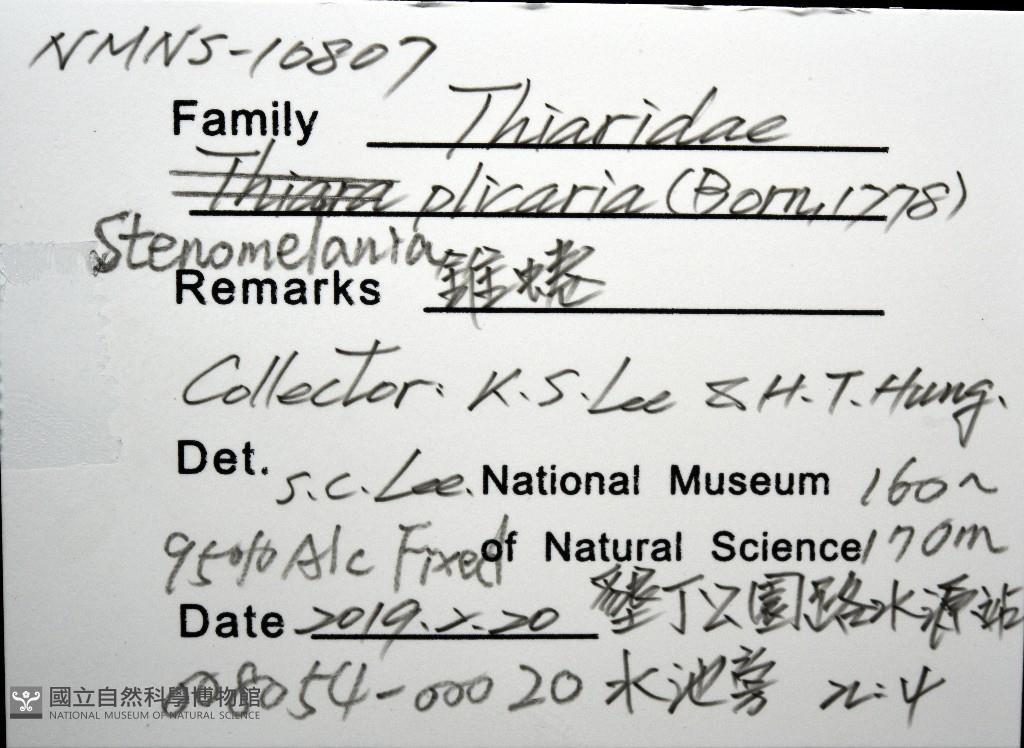 NMNS-10807
Family Thiaridae
Thiara plicaria (Born, 1778)
Stenomelania
Remarks 錐蜷
Collector: K.S. Lee & H.T. Hung.
Det. S.C. Lee. National Museum 160~
95% Alc Fixed of Natural Science 170m
Date 2019.2.20 墾丁公園路水源站
008054-00020 水池旁 n=4
國立自然科學博物館
NATIONAL MUSEUM OF NATURAL SCIENCE